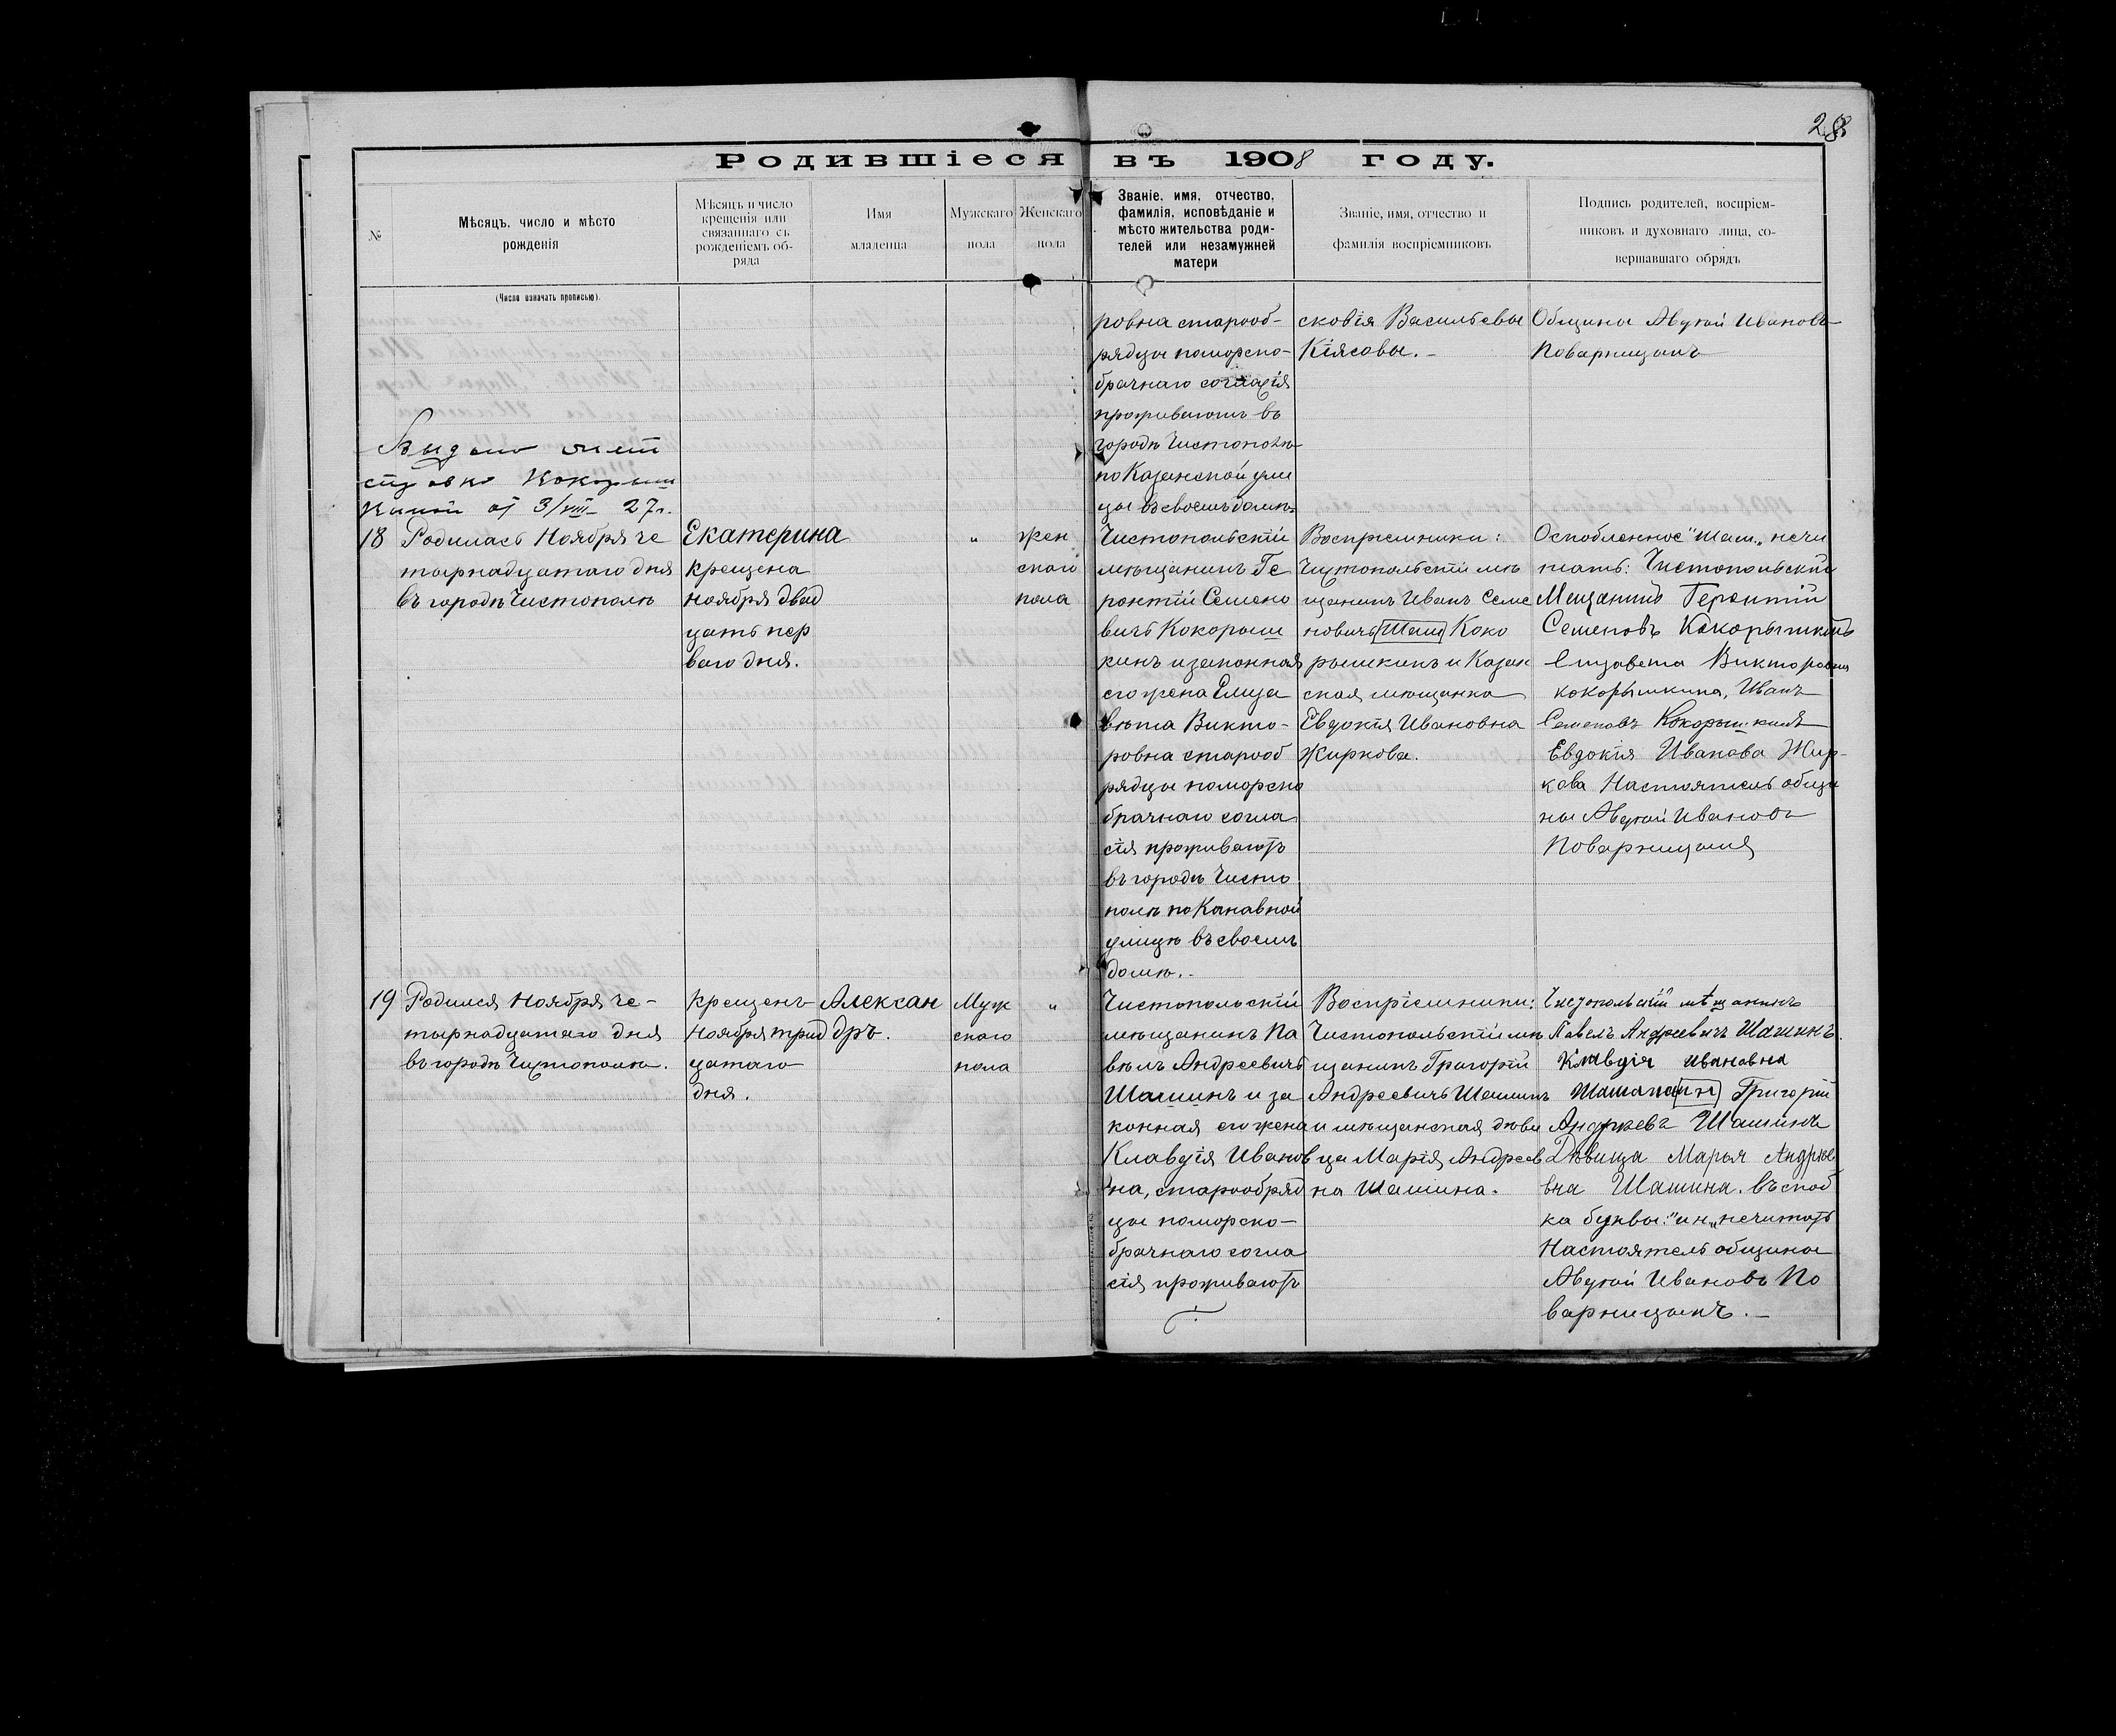 28
Родившіеся въ 1908 году.
№
Мѣсяцъ, число и мѣсто
рожденія
(Число означать прописью).
Мѣсяцъ и число
крещенія или
связаннаго съ
рожденіемъ об-
ряда
Имя
младенца
Мужскаго
пола
Женскаго
пола
Званіе, имя, отчество,
фамилія, исповѣданіе и
мѣсто жительства роди-
телей или незамужней
матери
Званіе, имя, отчество и
фамилія воспріемниковъ
Подпись родителей, воспріем-
никовъ и духовнаго лица, со-
вершавшаго обрядъ
ровна старооб-
рядцы поморско-
брачнаго согласія
проживаютъ въ
городѣ Чистополѣ
по Казанской ули
цы въ своемъ домѣ
сковія Васильевы
Кіясовы.-
Общины Авдѣй Ивановъ
Поварницынъ
от 3/VIII 27г.
18
Родилась Ноября че
тырнадцатаго дня
въ городѣ Чистополѣ
Екатерина
крещена
ноября двад
цать пер
ваго дня.
"
жен
скаго
пола
Чистопольскій
мѣщанинъ Ге
ронтій Семено
вичъ Кокорыш
кинъ и законная
его жена Елиза
вѣта Викто-
ровна старооб
рядцы поморско
брачнаго согла
сія проживаютъ
въ городѣ Чисто
полѣ по Канавной
улицѣ въ своемъ
домѣ.-
Воспріемники:
Чистопольскій мѣ
щанинъ Иванъ Семе
новичъ Шаш Коко
рышкинъ и Казан
ская мѣщанка
Евдокія Ивановна
Жиркова.
Оскобленное "Шаш" нечи
тать: Чистопольскій
Мещанинъ Геронтій
Семеновъ Кокорышкинъ
Елизавета Викторовна
кокорышкина, Иванъ
Семеновъ Кокорышкинъ
Евдокія Иванова Жир-
кова Настоятель общи
ны Авдѣй Ивановъ
Поварницынъ
19
Родился Ноября че-
тырнадцатаго дня
въ городѣ Чистополѣ.
Крещенъ
Ноября трид
цатаго
дня.
Алексан
дръ.
Муж
скаго
пола
"
Чистопольскій
мѣщанинъ Па
вѣлъ Андреевичъ
Шашинъ и за
конная его жена
Клавдія Иванов
на, старообряд
цы поморско-
брачнаго согла
сія проживаютъ
Воспріемники:
Чистопольскій мѣ
щанинъ Григорій
Андреевичъ Шашинъ
и мѣщанская дѣви
ца Марія Андреев
на Шашина.
Чистопольскій мѣщанинъ
Павелъ Андреевичъ Шашинъ.
Клавдія Ивановна
Шашана ин Григорій
Андреевъ Шашинъ
Дѣвица Марья Андрѣе
вна Шашина. Въ скоб
ка буквы: "ин" нечитать
Настоятель общины
Авдѣй Ивановъ По
варницынъ.-